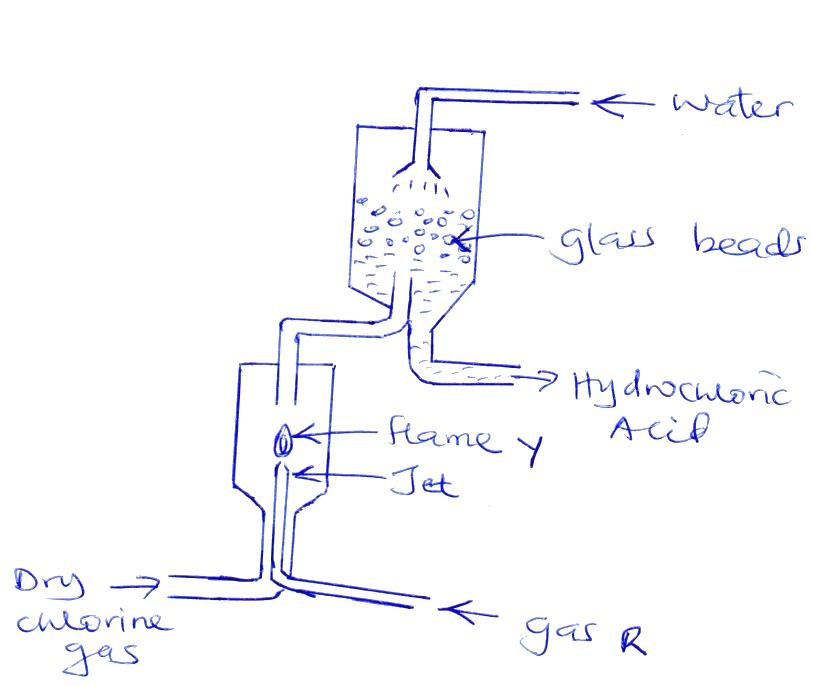 Water
Glass beads
Hydrochloric
Acid
Flame Y
Jet
Dry
chlorine
gas
gas R